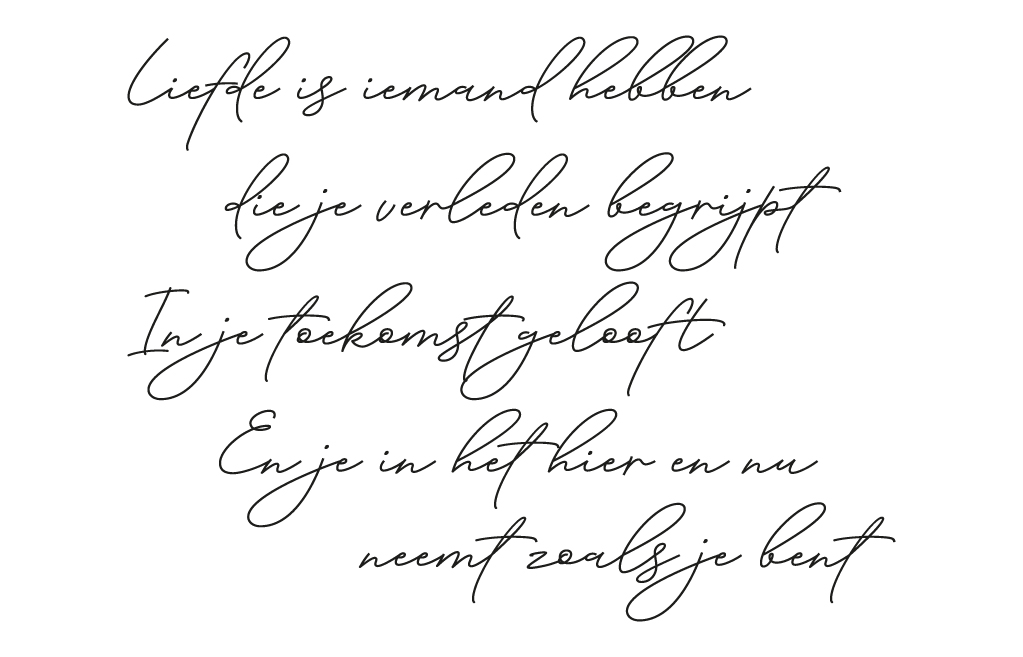 Liefde is iemand hebben
die je verleden begrijpt
In je toekomst gelooft
En je in het hier en nu
neemt zoals je bent